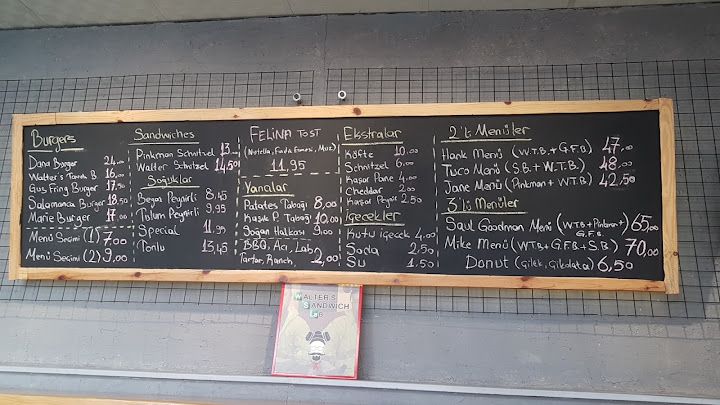 Burgers
Dana Burger 24.00
Walter's Tavuk B. 16.00
Gus Fring Burger 17.50
Salamanca Burger 18.50
Marie Burger 17.00
Menü Seçimi (1) 7.00
Menü Seçimi (2) 9.00
Sandwiches
Pinkman Schnitzel 13
Walter Schnitzel 14.50
Soğuklar
Beyaz Peynirli 8.45
Tulum Peynirli 9.95
Special 11.95
Tonlu 13.45
FELiNA TOST
11.95
Yanalar
Patates Tabağı 8,00
Kaşık P. Tabağı 10.00
Soğan Halkası 9.00
BBQ, Acı, Lab
Tartar, Ranch, 2,00
Ekstralar
Köfte 10.00
Schnitzel 6.00
Kaşar Pane 4.00
Cheddar 2.00
Kaşar Peynir 2.50
İçecekler
Kutu içecek 4.00
Soda 2,50
Su 1,50
2'li Menüler
Hank Menü (W.T.B + G.F.B) 47.00
Tuco Menü (S.B + W.T.B.) 48.00
Jane Menü (Pinkman + W.T.B) 42,50
3'lü Menüler
Saul Goodman Menü (W.T.B + Pinkman + G.F.B.) 65.00
Mike Menü (W.T.B + G.F.B + S.B) 70,00
Donut (Çilek, Çikolata) 6,50
WALTER'S
SANDWICH
LAB